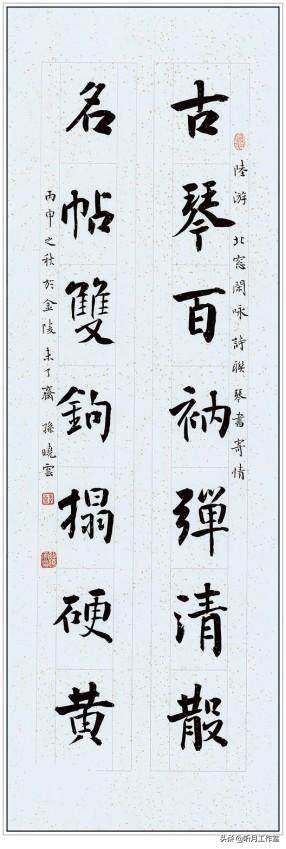 陸游 北窓閑咏 詩聯 琴書寄情
古琴百衲彈清散
名帖雙鉤搨硬黄
丙申之秋於金陵未了齋 孫曉雲
头条@昕月工作室